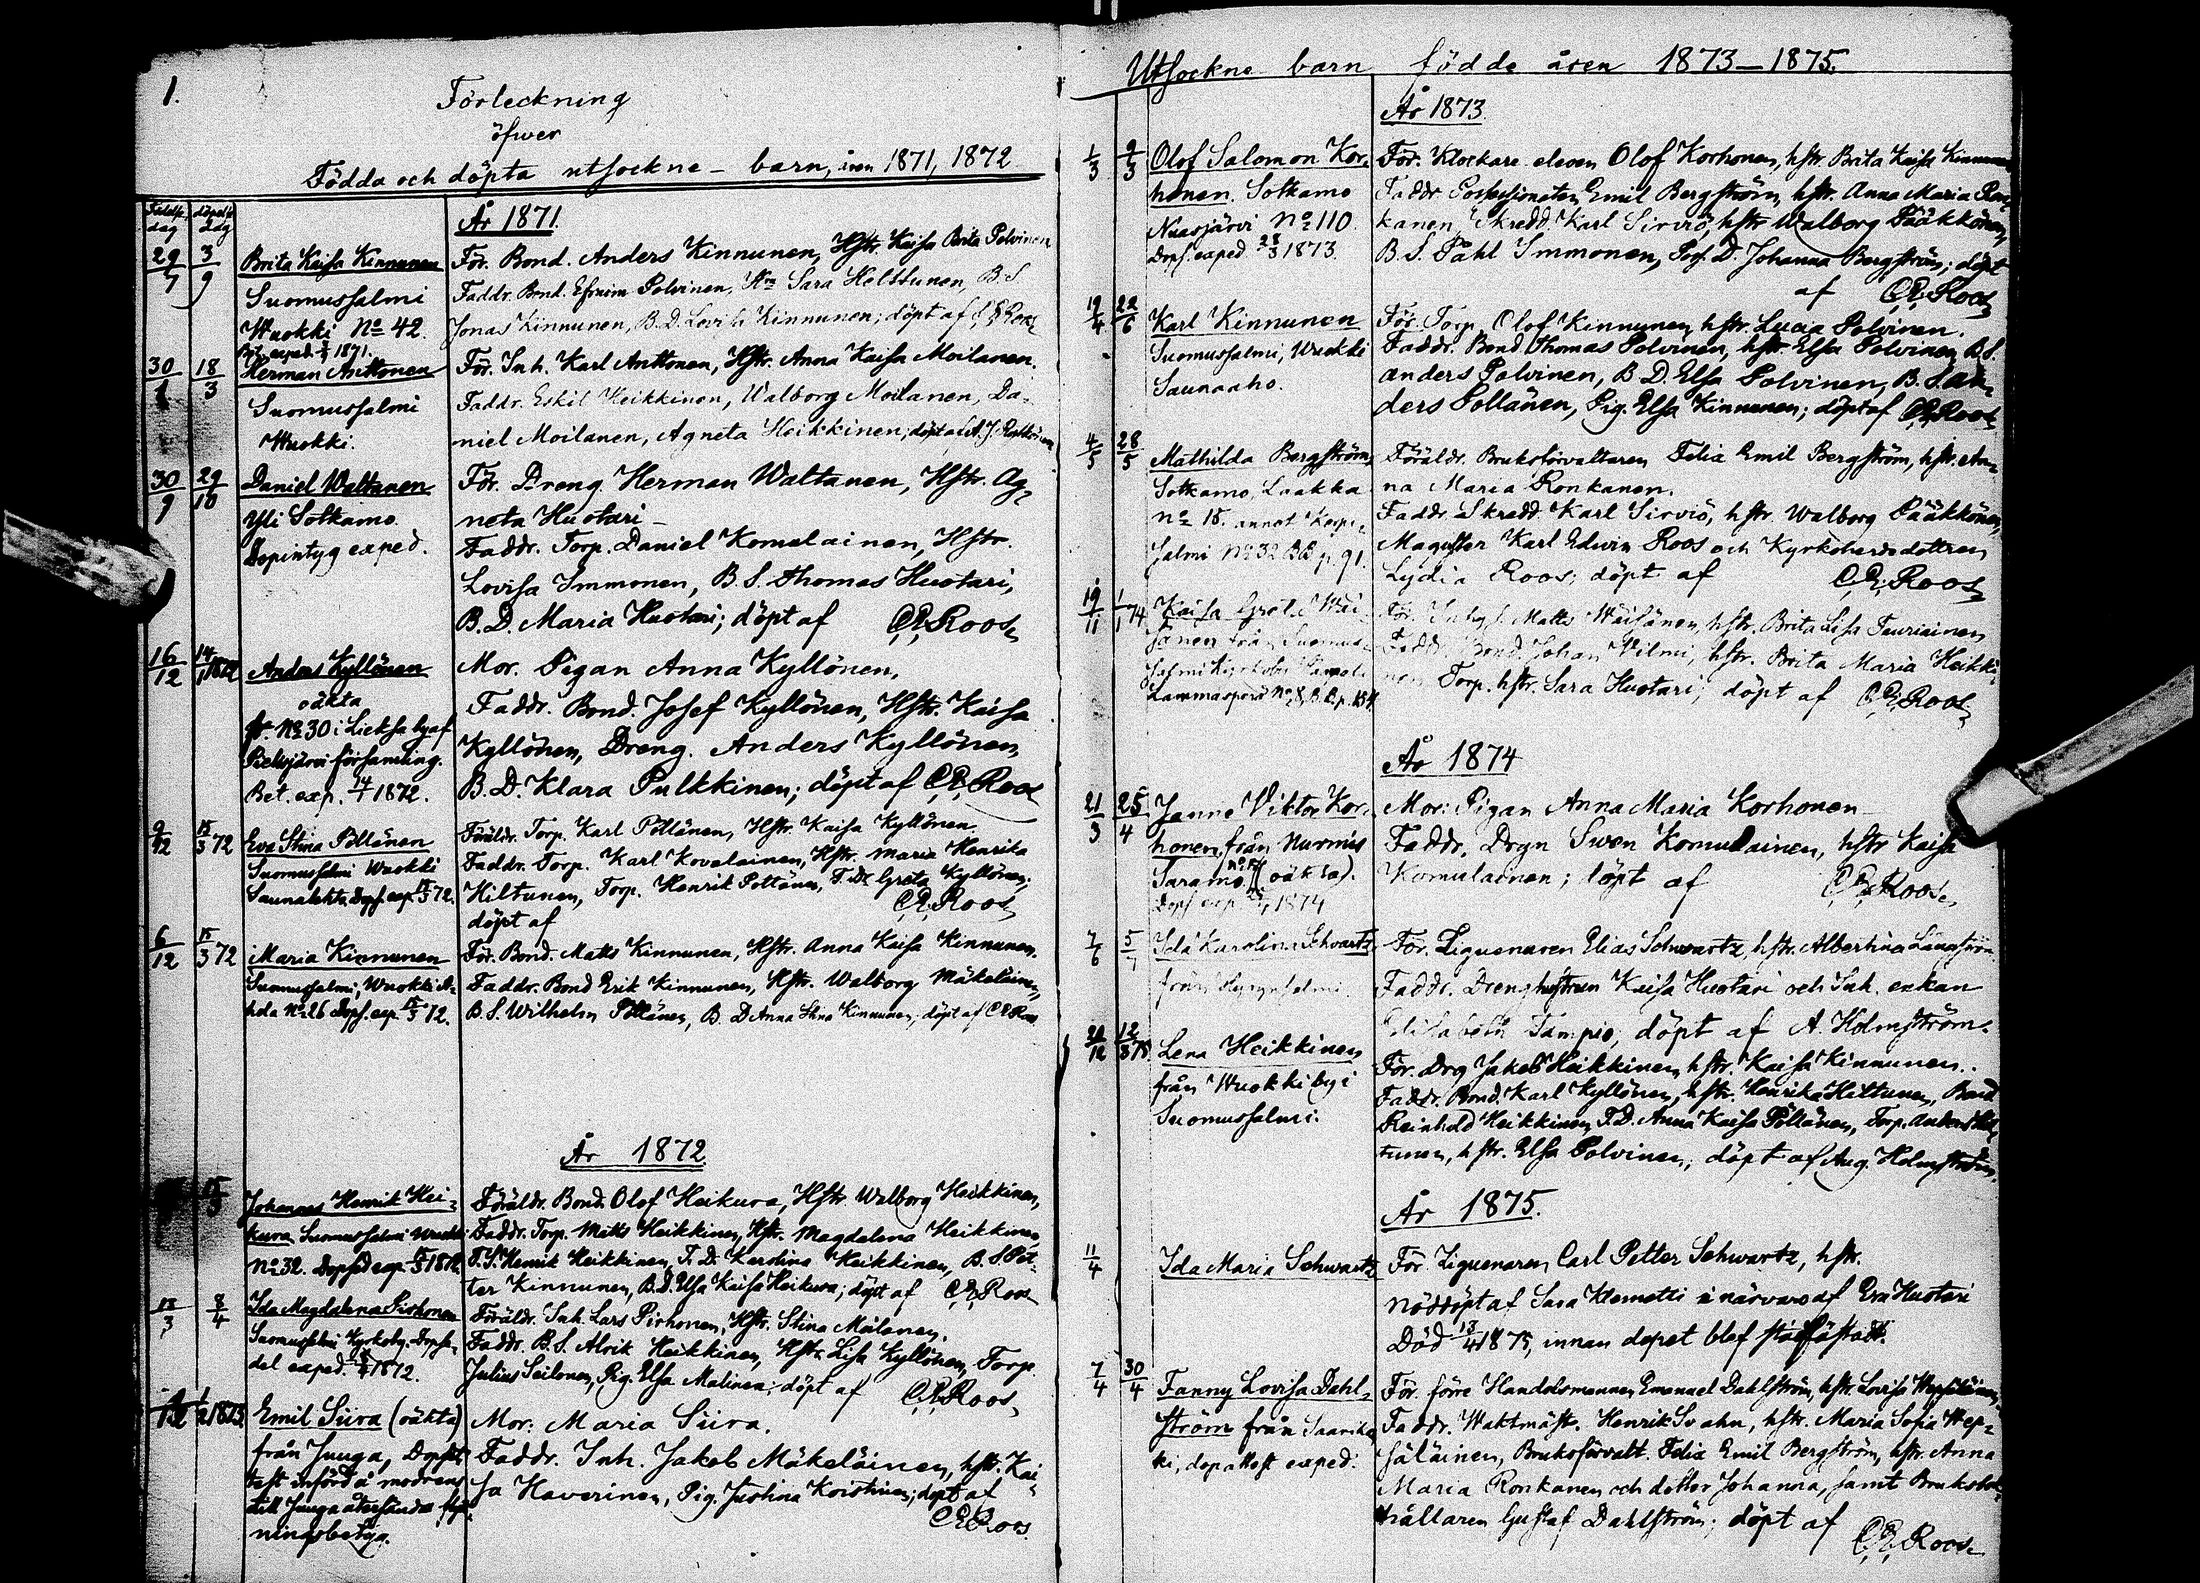 1.
Förteckning
öfwer
Födda och döpta utsockne-barn, åren 1871, 1872
Födelse dag
döpelse dag
År 1871.
29/7 3/9 Brita Kaisa Kinnunen
Suomussalmi
Wuokki No 42.
exped. 1871.
För. Bond. Anders Kinnunen, Hstr. Kaisa Brita Polvinen
Faddr. Bond. Efraim Polvinen, Sara Helttunen, B.S.
Jonas Kinnunen, B.D. Lovisa Kinnunen; döpt af C.E. Roos
30/1 18/3 Herman Anttonen
Suomussalmi
Wuokki.
För. Inh. Karl Anttonen, Hstr. Anna Kaisa Moilanen.
Faddr. Eskil Heikkinen, Walborg Moilanen, Da-
niel Moilanen, Agneta Heikkinen; döpt af
30/9 29/10 Daniel Waltanen
Yli Sotkamo.
Dopintyg exped.
För. Dreng Herman Waltanen, Hstr. Ag-
neta Huotari
Faddr. Torp. Daniel Komulainen, Hstr.
Lovisa Immonen, B.S. Thomas Huotari,
B.D. Maria Huotari; döpt af C.E. Roos
16/12 14/1 1872 Anders Kyllönen
oäkta
fr. No 30 i Lieksa by af
Pielisjärvi församling.
Bet. exp. 14/1 1872.
Mor. Pigan Anna Kyllönen,
Faddr. Bond. Josef Kyllönen, Hstr. Kaisa
Kyllönen, Dreng. Anders Kyllönen,
B.D. Klara Pulkkinen; döpt af C.E. Roos
9/12 15/3 72 Eva Stina Pöllänen
Suomussalmi Wuokki
Saunalehto, Dops. exp. 15/3 72.
Föräldr. Torp. Karl Pöllänen, Hstr. Kaisa Kyllönen.
Faddr. Torp. Karl Kovalainen, Hstr. Maria Henrika
Hiltunen, Torp. Henrik Pöllänen, T.D. Greta Kyllönen;
döpt af C.E. Roos
6/12 15/3 72 Maria Kinnunen
Suomussalmi, Wuokki
No 26 Dops. exp. 15/3 72.
För. Bond. Matts Kinnunen, Hstr. Anna Kaisa Kinnunen.
Faddr. Bond Erik Kinnunen, Hstr. Walborg Mäkeläinen,
B.S. Wilhelm Pöllänen, B.D. Anna Stina Kinnunen; döpt af C.E. Roos
År 1872
15/3 Johannes Henrik Hei-
kura Suomussalmi Wuokki
No 32. exp. 15/3 1872.
Föräldr. Bond. Olof Heikura, Hstr. Walborg Heikkinen,
Faddr. Torp. Matts Heikkinen, Hstr. Magdalena Heikkinen
T.S. Henrik Heikkinen, T.D. Karolina Heikkinen, B.S. Pet-
ter Kinnunen, B.D. Elsa Kaisa Heikura; döpt af C.E. Roos
18/3 8/4 Ida Magdalena Pirhonen
Suomussalmi Kyrkoby. Dopse-
del exped. 1872.
Föräldr. Inh. Lars Pirhonen, Hstr. Stina Moilanen.
Faddr. B.S. Alrik Heikkinen, Hstr. Lisa Kyllönen, Torp.
Julius Seilonen, Pig. Elsa Malinen; döpt af C.E. Roos
1873 Emil Siira (oäkta)
från Juuga, Dopat-
test införd å modrens
till Juuga återsända
ningsbetyg.
Mor: Maria Siira.
Faddr. Inh. Jakob Mäkeläinen, hstr. Kai-
sa Haverinen, Pig. Justina Koistinen; döpt af
C.E. Roos.
Utsockne barn födde åren 1873–1875.
År 1873.
1/3 9/3 Olof Salomon Kor-
honen. Sotkamo
Nuasjärvi No 110.
Dops. exped. 23/3 1873.
För. Klockare eleven Olof Korhonen, hstr. Brita Kaisa Kinnunen
Faddr. Possessionaten Emil Bergström, hstr. Anna Maria Ron-
kanen, Skredd. Karl Sirviö, hstr Walborg Pääkkönen,
B.S. Påhl Immonen, D. Johanna Bergström; döpt
af C.E. Roos
19/4 22/6 Karl Kinnunen
Suomussalmi, Wuokki
Saunaaho.
För. Torp. Olof Kinnunen, hstr. Lucia Polvinen.
Faddr. Bond. Thomas Polvinen, hstr. Elsa Polvinen, B.S.
Anders Polvinen, B.D. Elsa Polvinen, B.S. An-
ders Pöllänen, Pig. Elsa Kinnunen; döpt af C.E. Roos
4/5 28/5 Mathilda Bergström,
Sotkamo, Laakka
No 18. annot Korpi-
salmi No 32 BB p. 91.
Föräldr. Bruksförvaltaren Felix Emil Bergström, hstr. An-
na Maria Ronkanen.
Faddr. Skredd. Karl Sirviö, hstr. Walborg Pääkkönen,
Magister Karl Edwin Roos och Kyrkoherdedottren
Lydia Roos; döpt af C.E. Roos
19/11 1/1 74 Kaisa Greta Wäi-
sänen från Suomus-
salmi Kyrkoby
Lammasperä No 8, B.B. p. 134.
För. Matts Wäisänen, hstr. Brita Lisa Tauriainen
Faddr. Bond. Johan Wilmi, hstr. Brita Maria Heikki-
nen Torp. hstr. Sara Huotari; döpt af C.E. Roos
År 1874
21/3 25/4 Janne Viktor Kor-
honen, från Nurmis
Saramo. (oäkta).
Dops. exp. 1874
Mor: Pigan Anna Maria Korhonen
Faddr, Drgn Swen Komulainen, hstr Kaisa
Komulainen; döpt af C.E. Roos.
7/6 5/7 Ida Karolina Schvartz
från Hyrynsalmi
För. Ziguenaren Elias Schwartz, hstr. Albertina Långström
Faddr. Drenghustrun Kaisa Huotari och Inh. enkan
Elisabeth Tampio, döpt af A. Holmström.
12/3 75 Lena Heikkinen
från Wuokki by i
Suomussalmi.
För. Drg Jakob Heikkinen, hstr. Kaisa Kinnunen.
Faddr. Bond. Karl Kyllönen, hstr. Henrika Hiltunen, Bond
Reinhold Heikkinen, T.D. Anna Kaisa Pöllänen, Torp. Anders Hel-
tunen, hstr. Elsa Polvinen; döpt af Aug. Holmström.
År 1875.
11/4 Ida Maria Schwartz
För. Ziguenaren Carl Petter Schwartz, hstr.
Nöddöpt af Sara Klemetti i närvaro af Eva Huotari
Död 13/4 1875, innan dopet blef stadfästadt.
7/4 30/4 Fanny Lovisa Dahl-
ström från Saariko-
ki, dopattest exped.
För. förre Handelsmannen Emanuel Dahlström, hstr. Lovisa Wepsäläinen,
Faddr. Waktmäst. Henrik Svahn, hstr. Maria Sofia Wep-
säläinen, Bruksförvalt. Felix Emil Bergström, hstr. Anna
Maria Ronkanen och dotter Johanna, samt Bruksbok-
hållaren Gustaf Dahlström; döpt af C.E. Roos